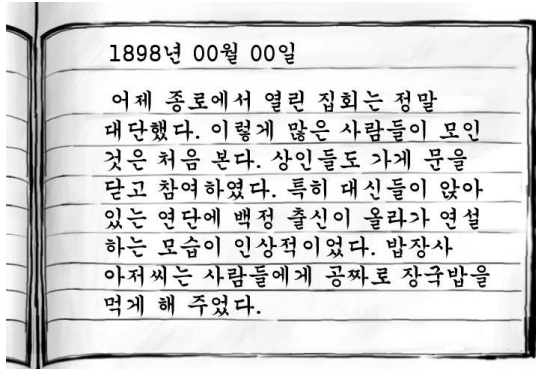 1898년 00월 00일
어제 종로에서 열린 집회는 정말
대단했다. 이렇게 많은 사람들이 모인
것은 처음 본다. 상인들도 가게 문을
닫고 참여하였다. 특히 대신들이 앉아
있는 연단에 백정 출신이 올라가 연설
하는 모습이 인상적이었다. 밥장사
아저씨는 사람들에게 공짜로 장국밥을
먹게 해 주었다.